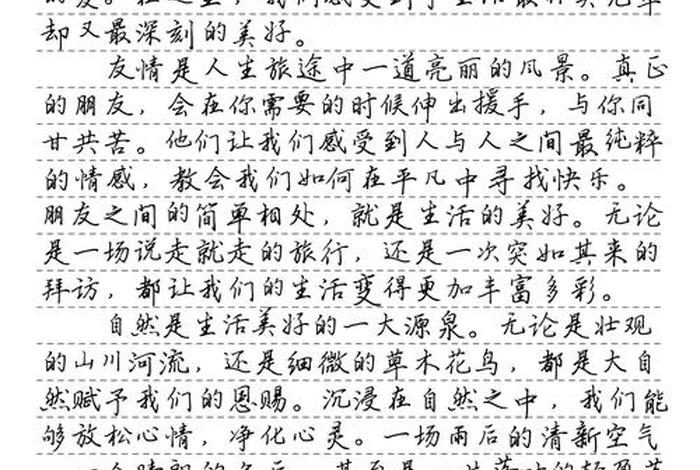 的爱。在这里，我们感受到了生活最朴实无华
却又最深刻的美好。
友情是人生旅途中一道亮丽的风景。真正
的朋友，会在你需要的时候伸出援手，与你同
甘共苦。他们让我们感受到人与人之间最纯粹
的情感，教会我们如何在平凡中寻找快乐。
朋友之间的简单相处，就是生活的美好。无论
是一场说走就走的旅行，还是一次突如其来的
拜访，都让我们的生活变得更加丰富多彩。
自然是生活美好的一大源泉。无论是壮观
的山川河流，还是细微的草木花鸟，都是大自
然赋予我们的恩赐。沉浸在自然之中，我们能
够放松心情，净化心灵。一场雨后的清新空气
一个晴朗的午后，甚至是一片落叶的轻盈